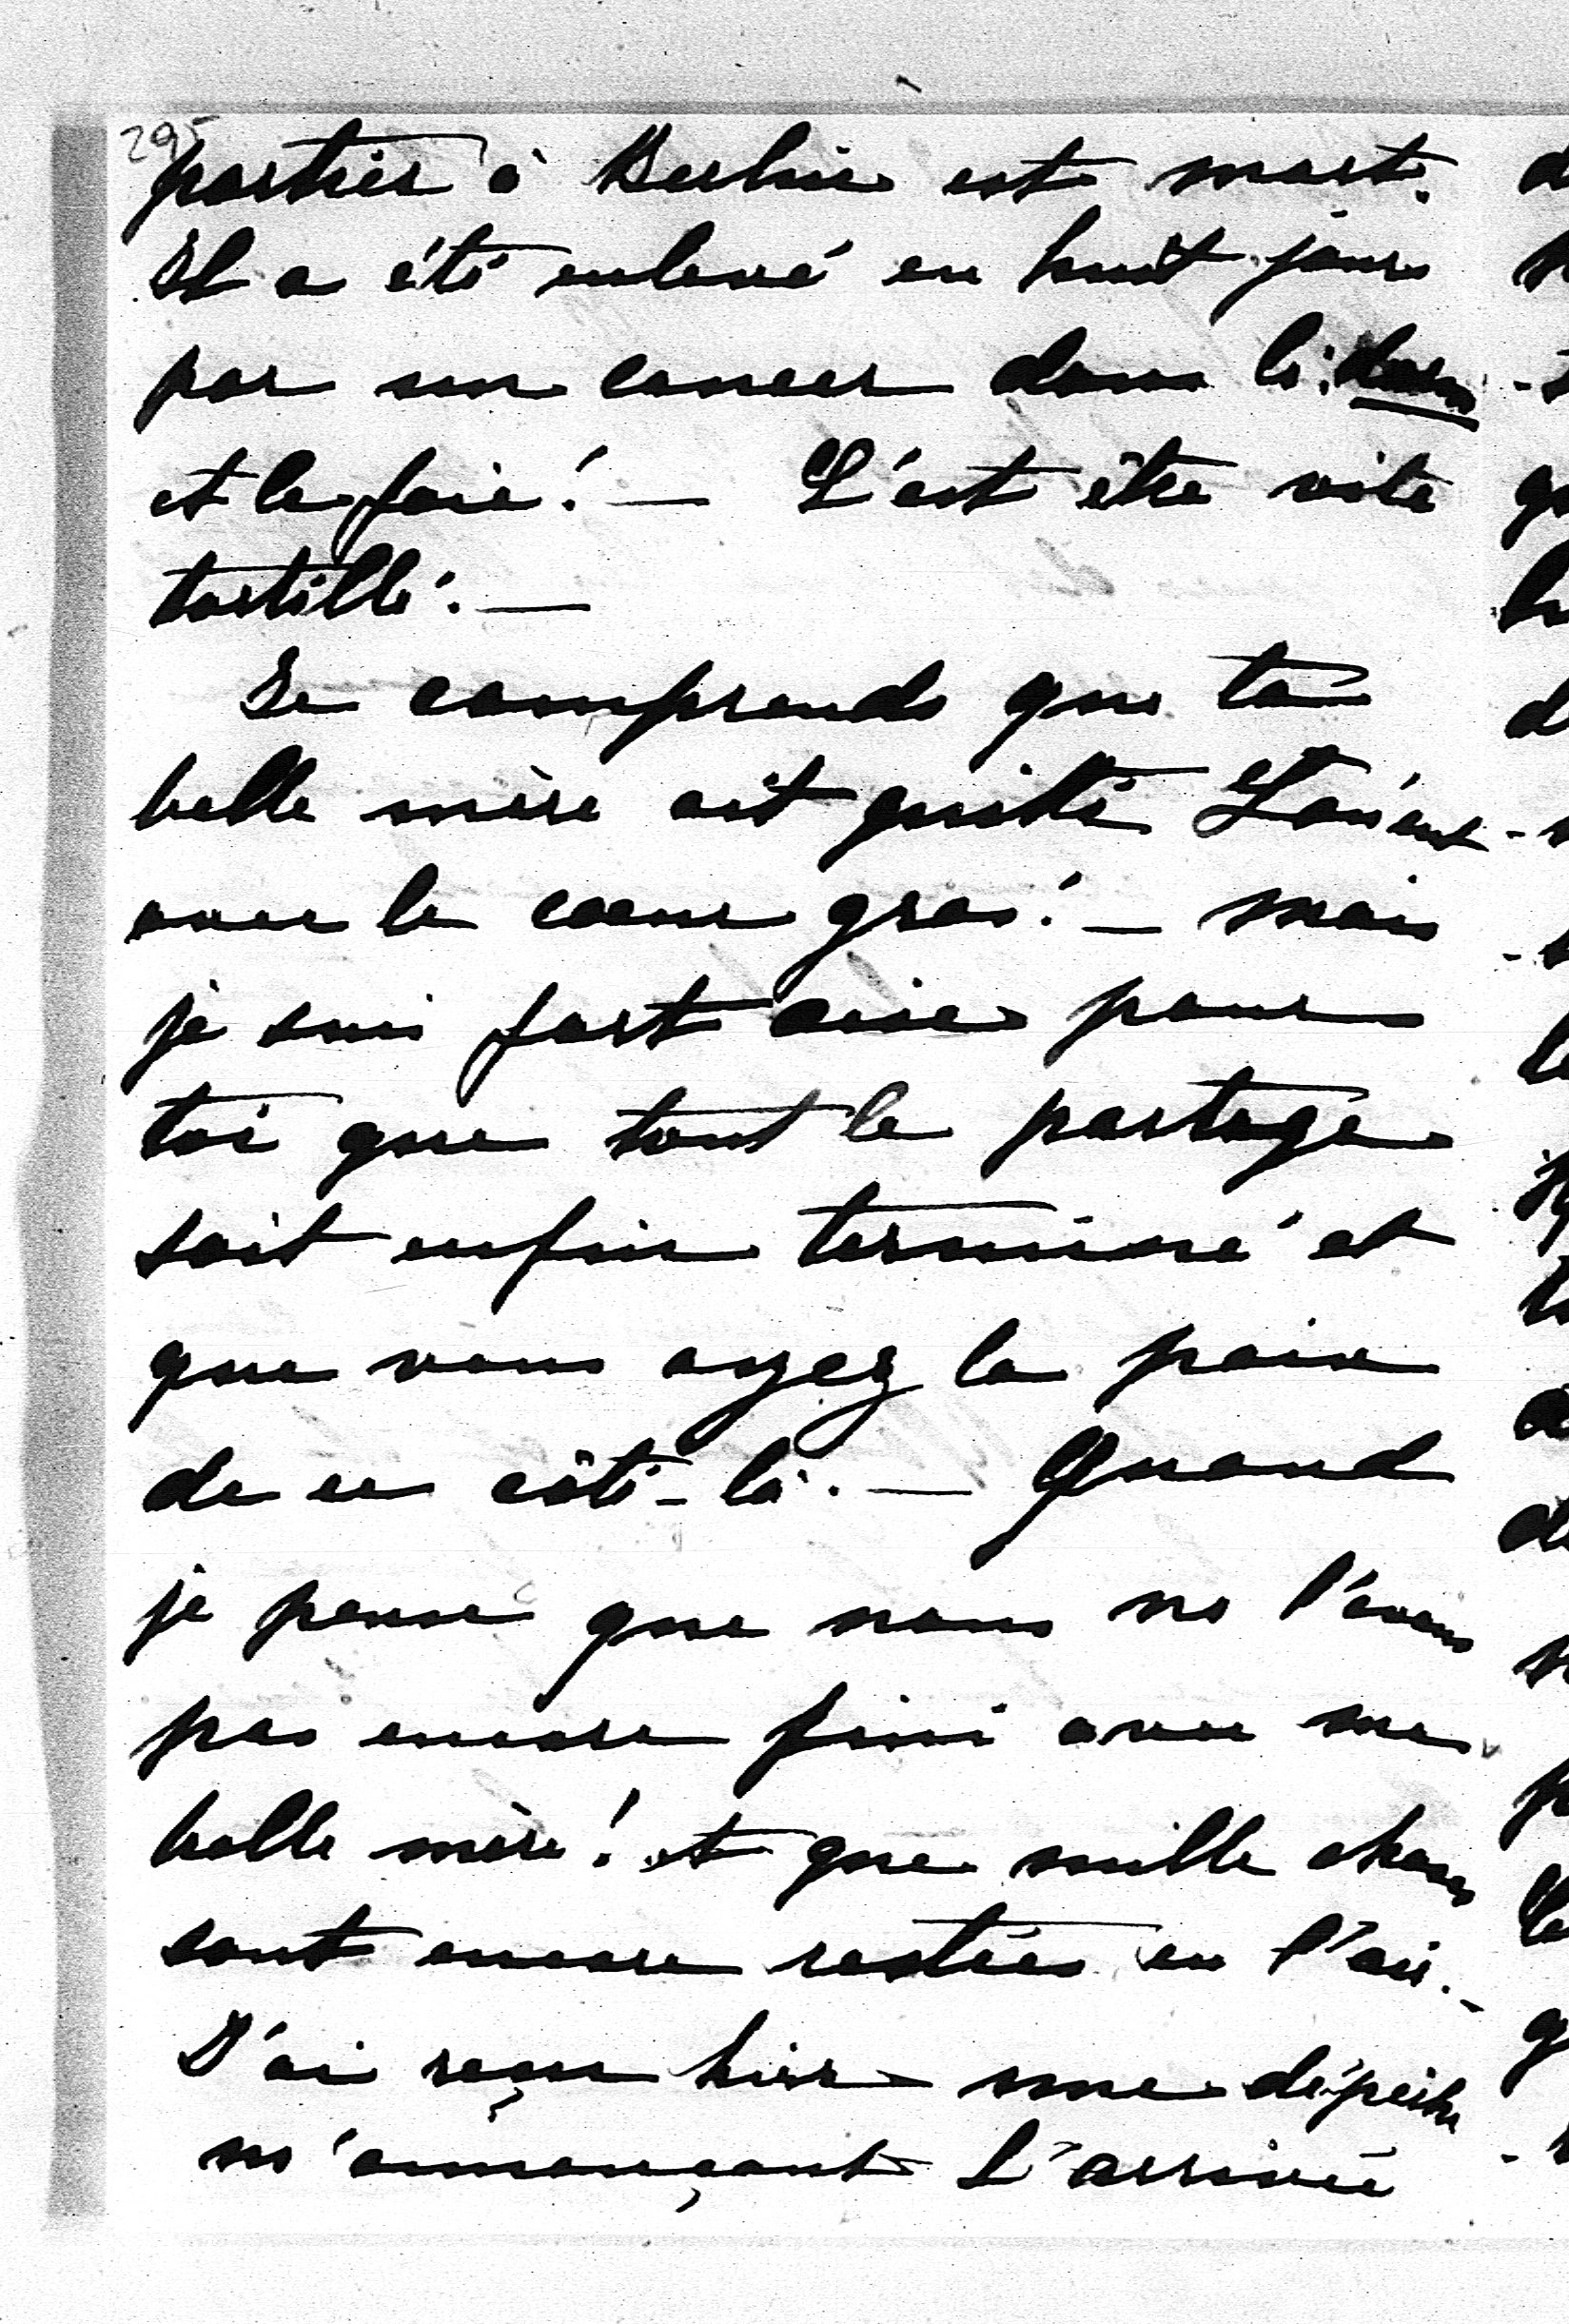 295
portier à Berlin est mort.
Il a été enlevé en huit jours
par un cancer dans le
et le foie! — C'est être vite
tortillé. —
Je comprends que ta
belle mère ait quitté
avec le cœur gros! — mais
je suis fort aise pour
toi que tout le partage
soit enfin terminé et
que vous ayez la paix
de ce côté-là. — Quand
je pense que nous ne l'avons
pas encore fini avec ma
belle mère! et que mille choses
sont encore restées en l'air. -
J'ai reçu hier une dépêche
m'annonçant l'arrivée